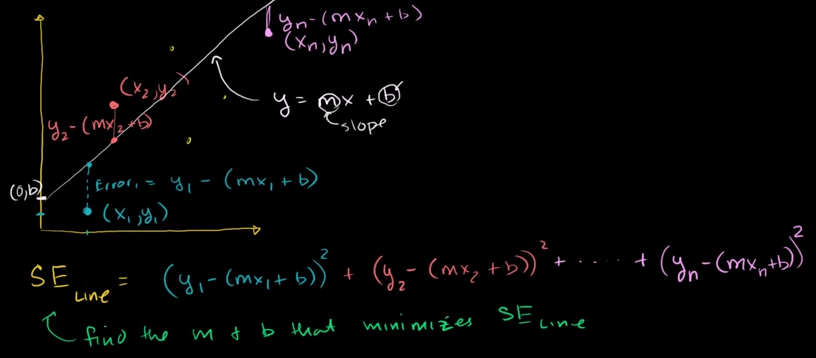 yₙ - (mxₙ + b)
(xₙ, yₙ)
(x₂, y₂)
y = mx + b
slope
y₂ - (mx₂ + b)
(0, b)
Error₁ = y₁ - (mx₁ + b)
(x₁, y₁)
SE Line = (y₁ - (mx₁ + b))² + (y₂ - (mx₂ + b))² + ····· + (yₙ - (mxₙ + b))²
find the m + b that minimizes SE Line